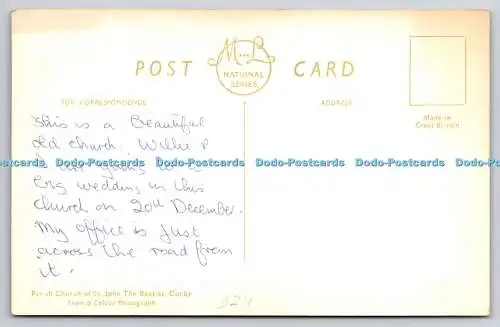 POST CARD
M and L
NATIONAL
SERIES
FOR CORRESPONDENCE
ADDRESS
Made in
Great Britain
This is a beautiful
old church. Willie P
Dodo-Postcards Dodo-Postcards Dodo-Postcards Dodo-Postcards Dodo-Postcards Dodo-Postcards
big wedding in this
church on 20th December.
My office is just
across the road from
it.
Parish Church of St. John The Baptist, Corby
From a Colour Photograph